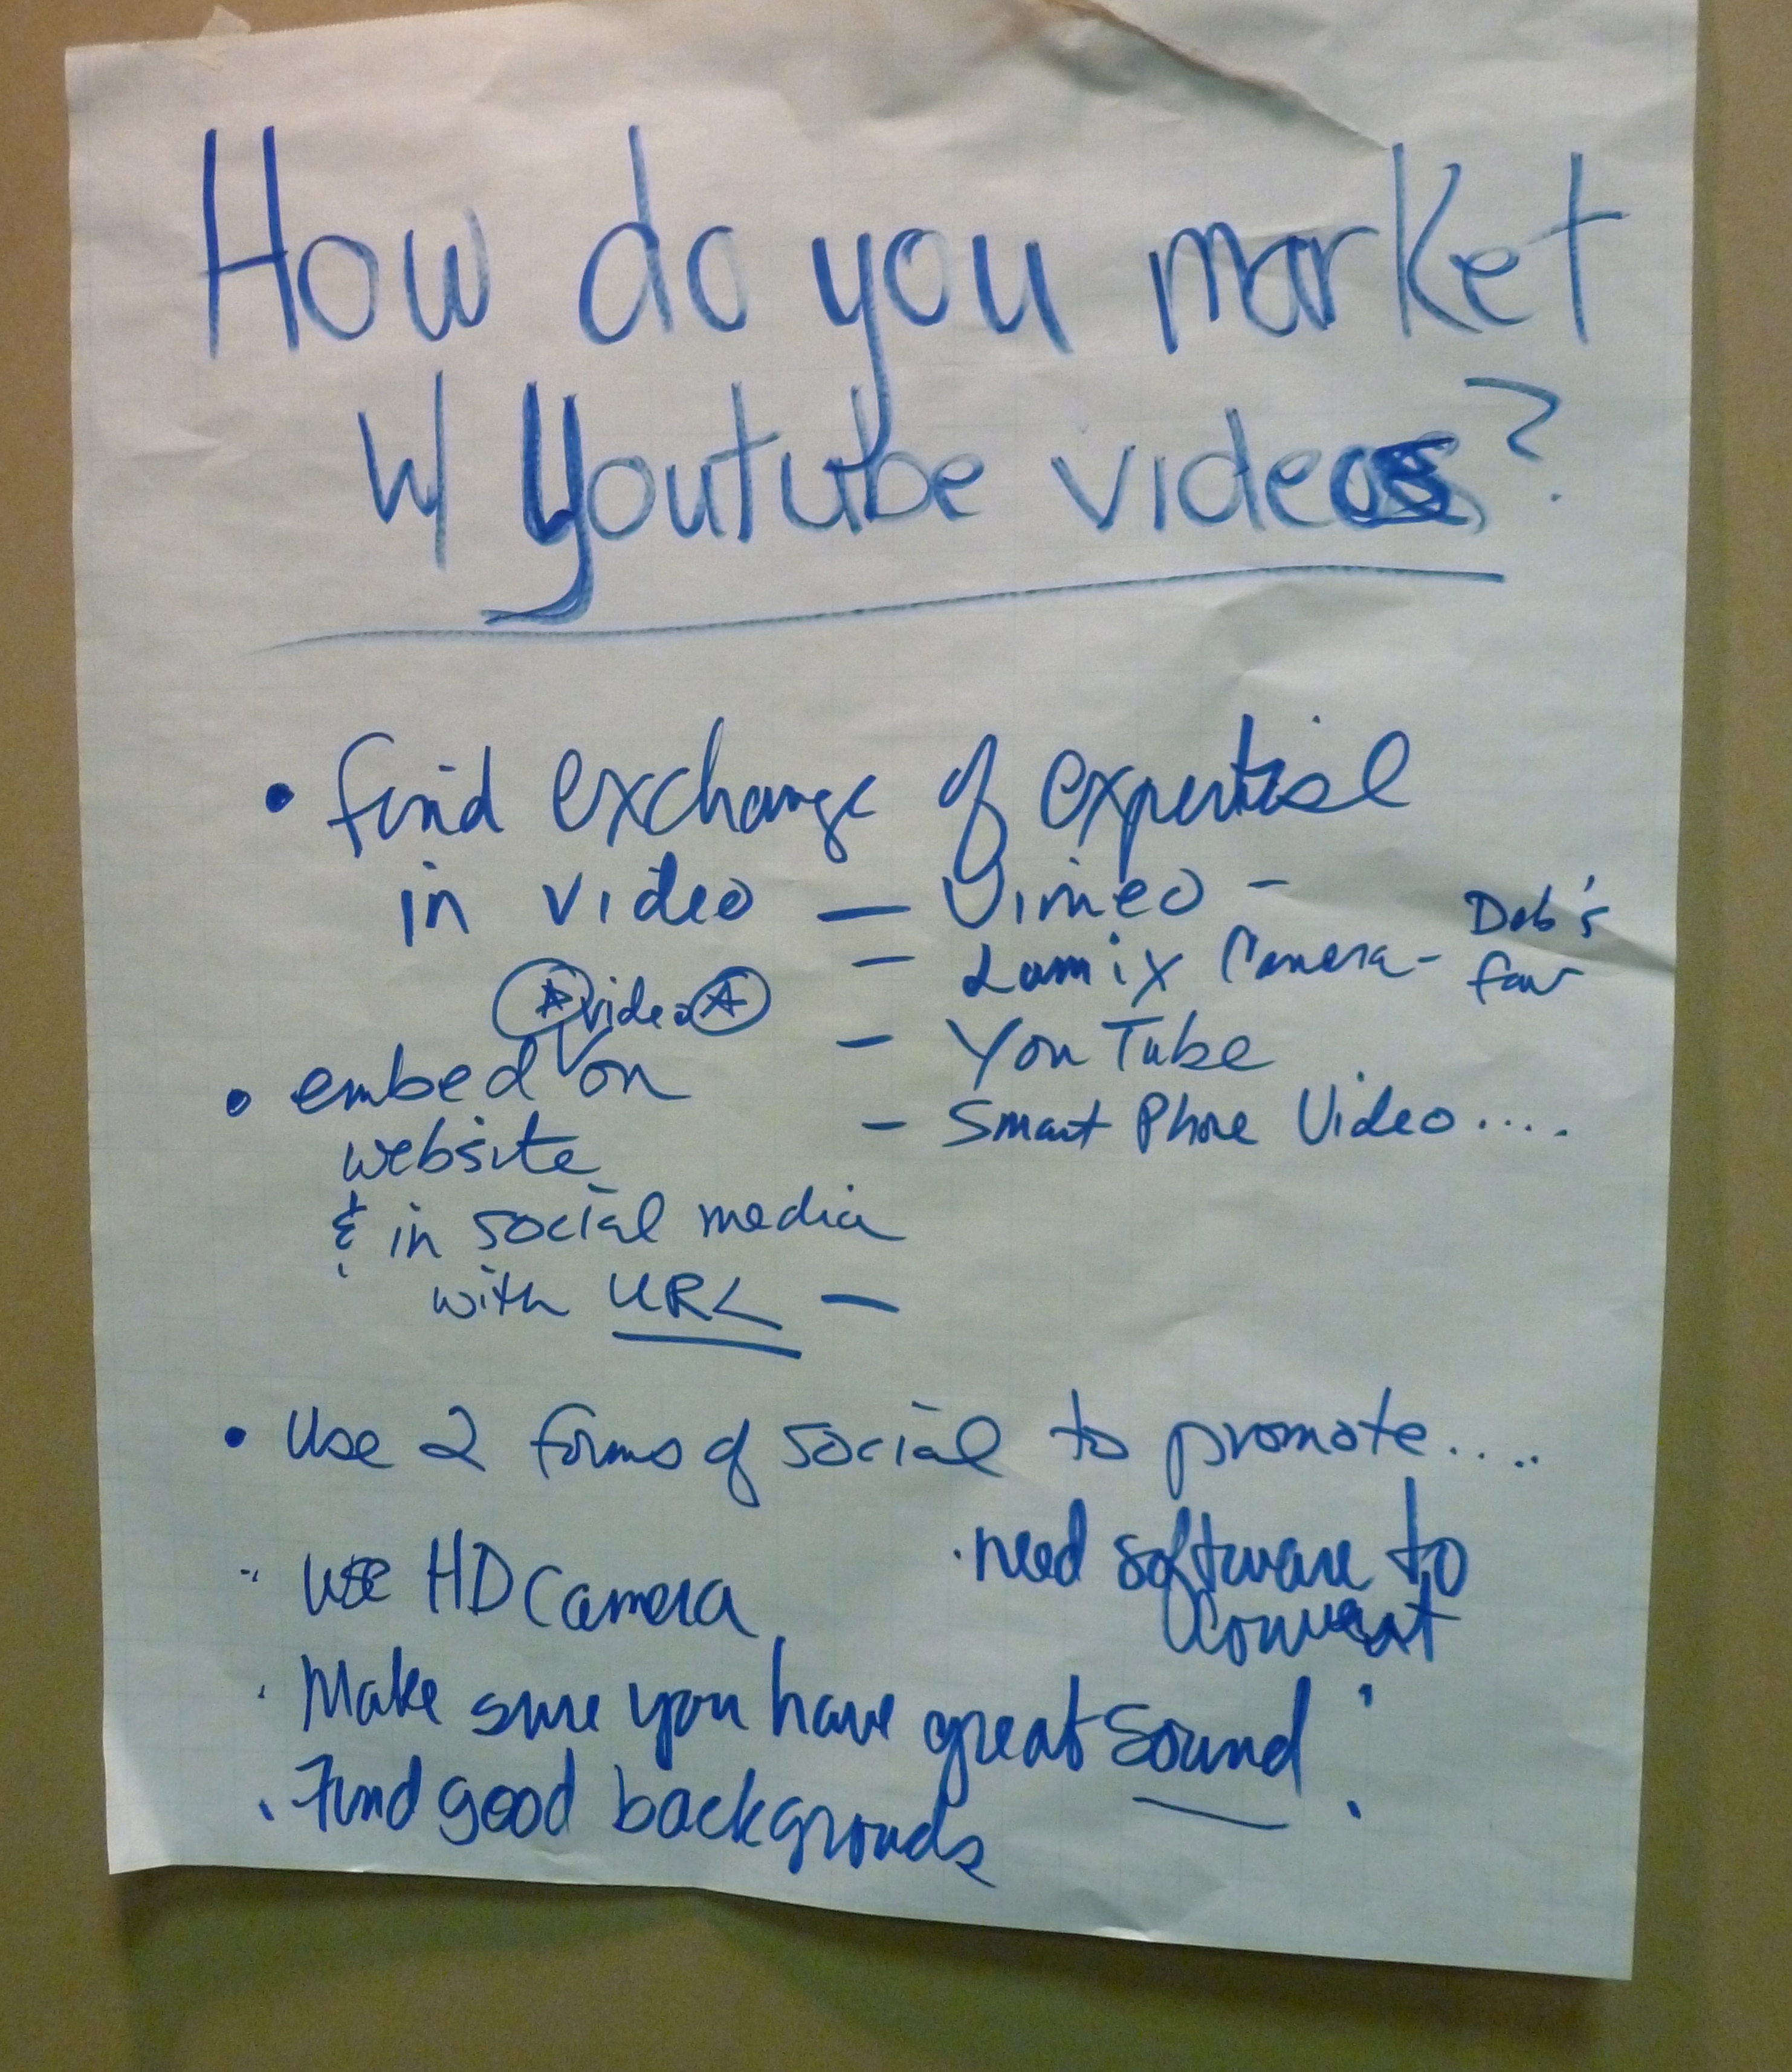 How do you market
w/ Youtube videos?
• find exchange of expertise
in video — Vimeo -
- Lumix Camera - Deb's fav
- YouTube
- Smart Phone Video ....
video
• embed on
website
& in social media
with URL —
• Use 2 forms of social to promote....
use HD Camera
· need software to
convert
· Make sure you have great sound
· Find good backgrounds